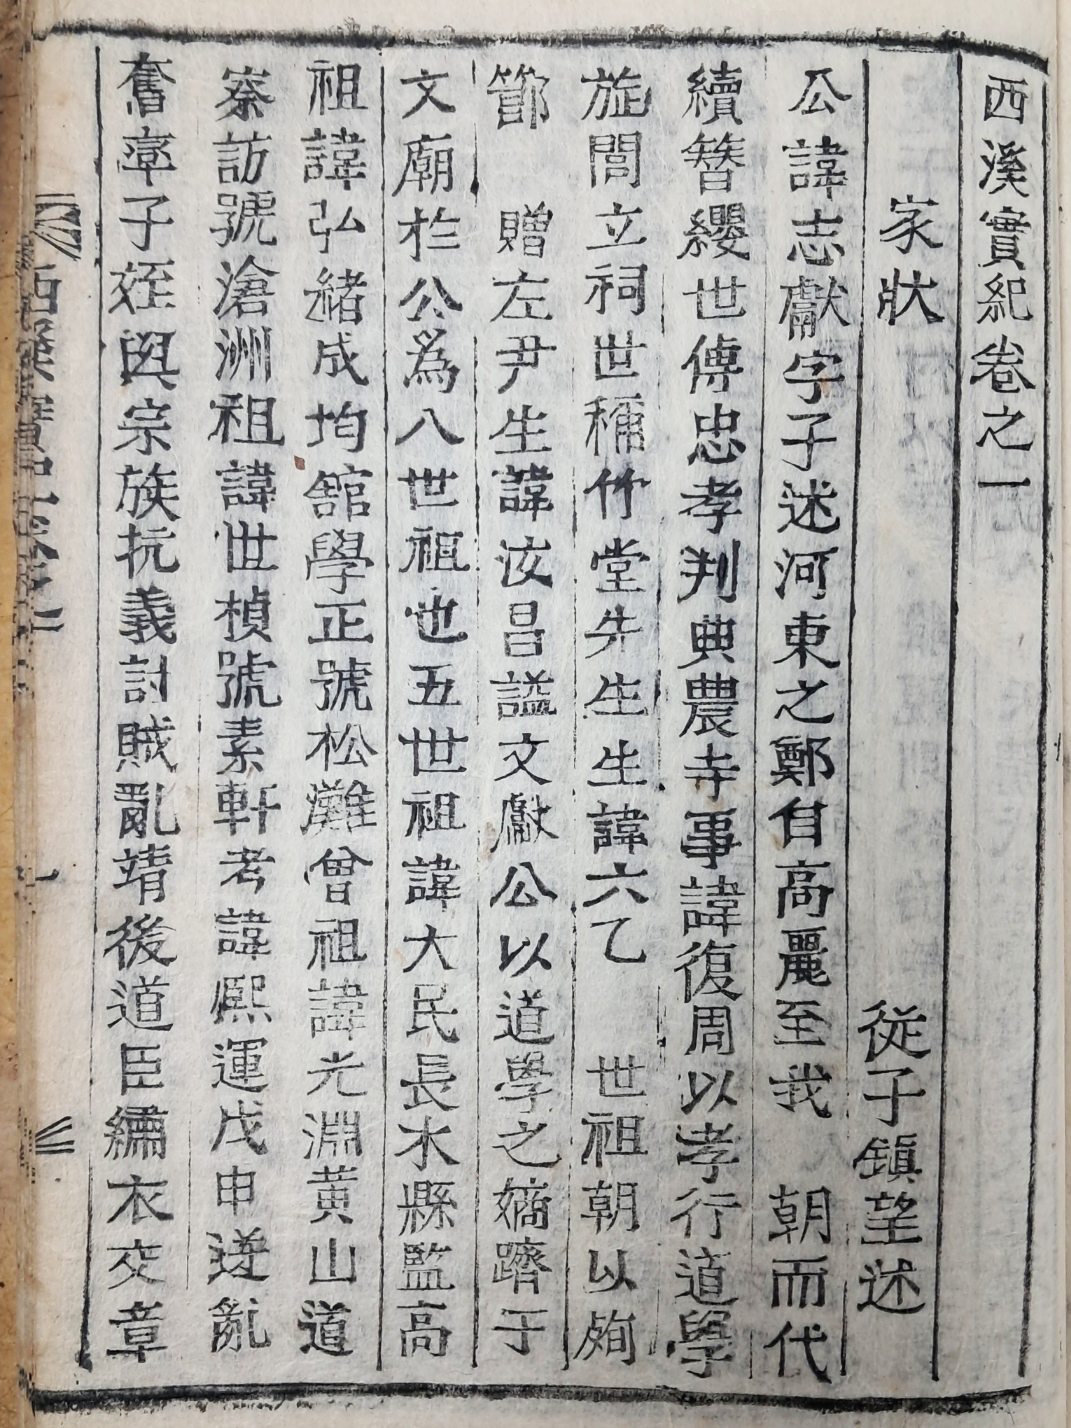 西溪實紀卷之一
家狀
從子鎭望述
公諱志獻字子述河東之鄭自高麗至我　朝而代
續簪纓世傳忠孝判典農寺事諱復周以孝行道學
旌閭立祠世稱竹堂先生生諱六乙　世祖朝以殉
節　贈左尹生諱汝昌謚文獻公以道學之嫡躋于
文廟於公爲八世祖也五世祖諱大民長水縣監高
祖諱弘緖成均舘學正號松灘曾祖諱光淵黃山道
察訪號滄洲祖諱世楨號素軒考諱熙運戊申逆亂
奮率子姪與宗族抗義討賊亂靖後道臣繡衣交章
西溪實紀卷之一
一